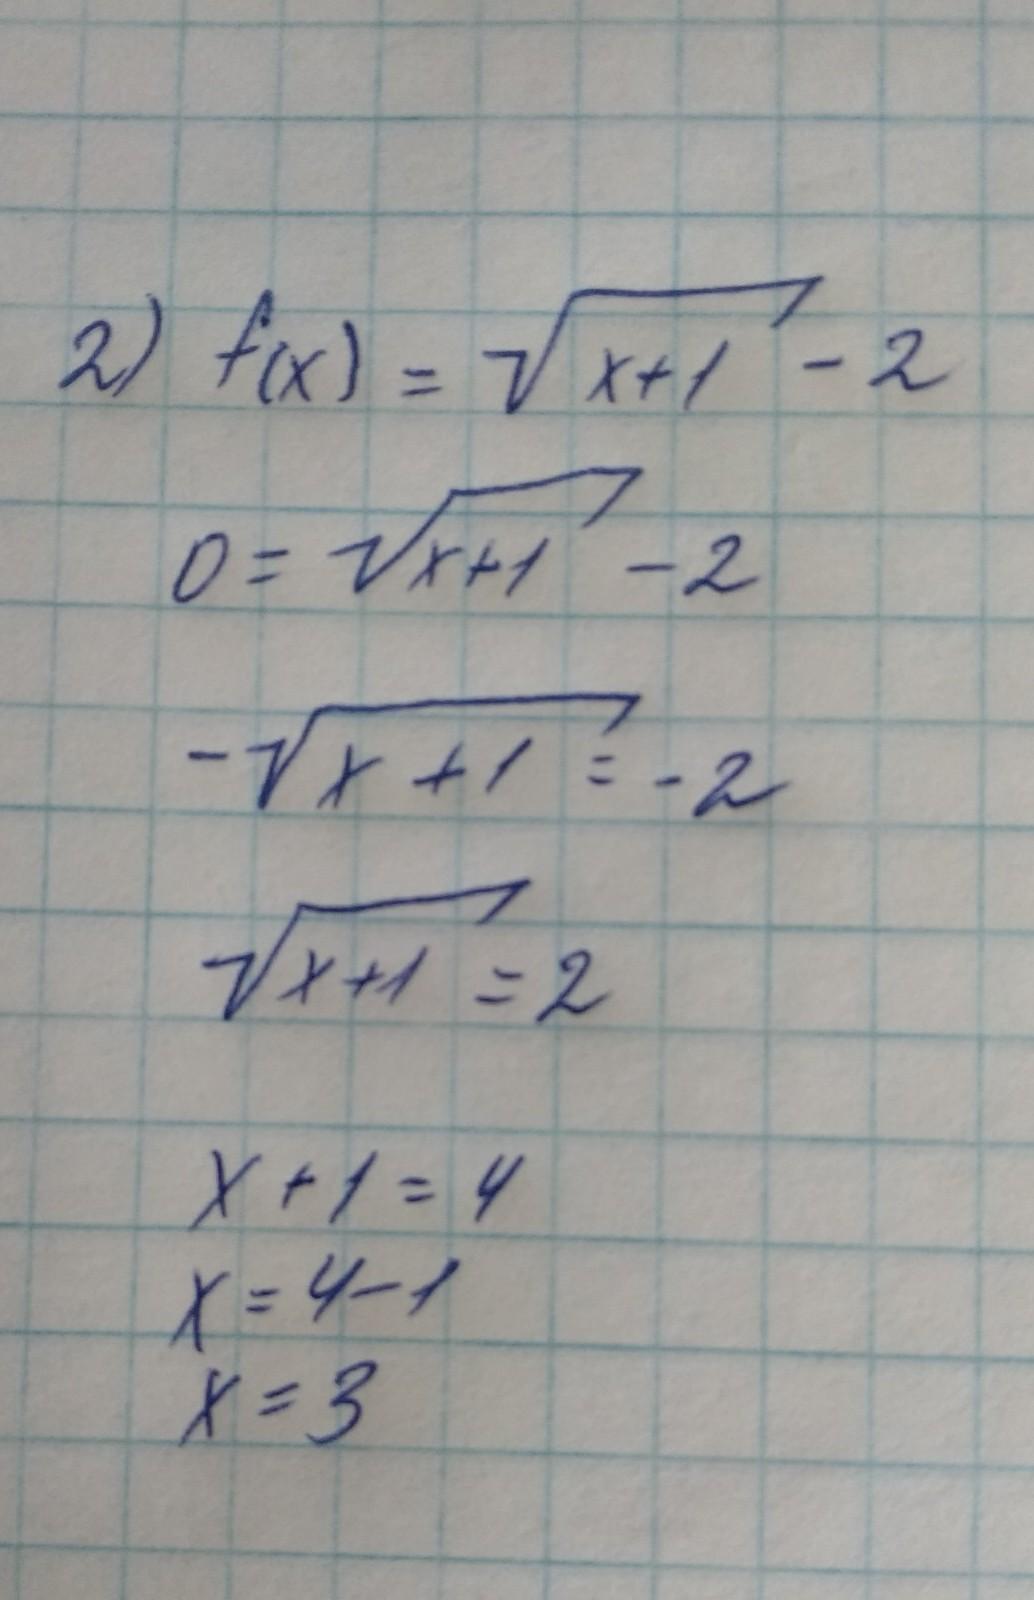 2) f(x) = √(x+1) - 2
0 = √(x+1) - 2
-√(x+1) = -2
√(x+1) = 2
x + 1 = 4
x = 4 - 1
x = 3